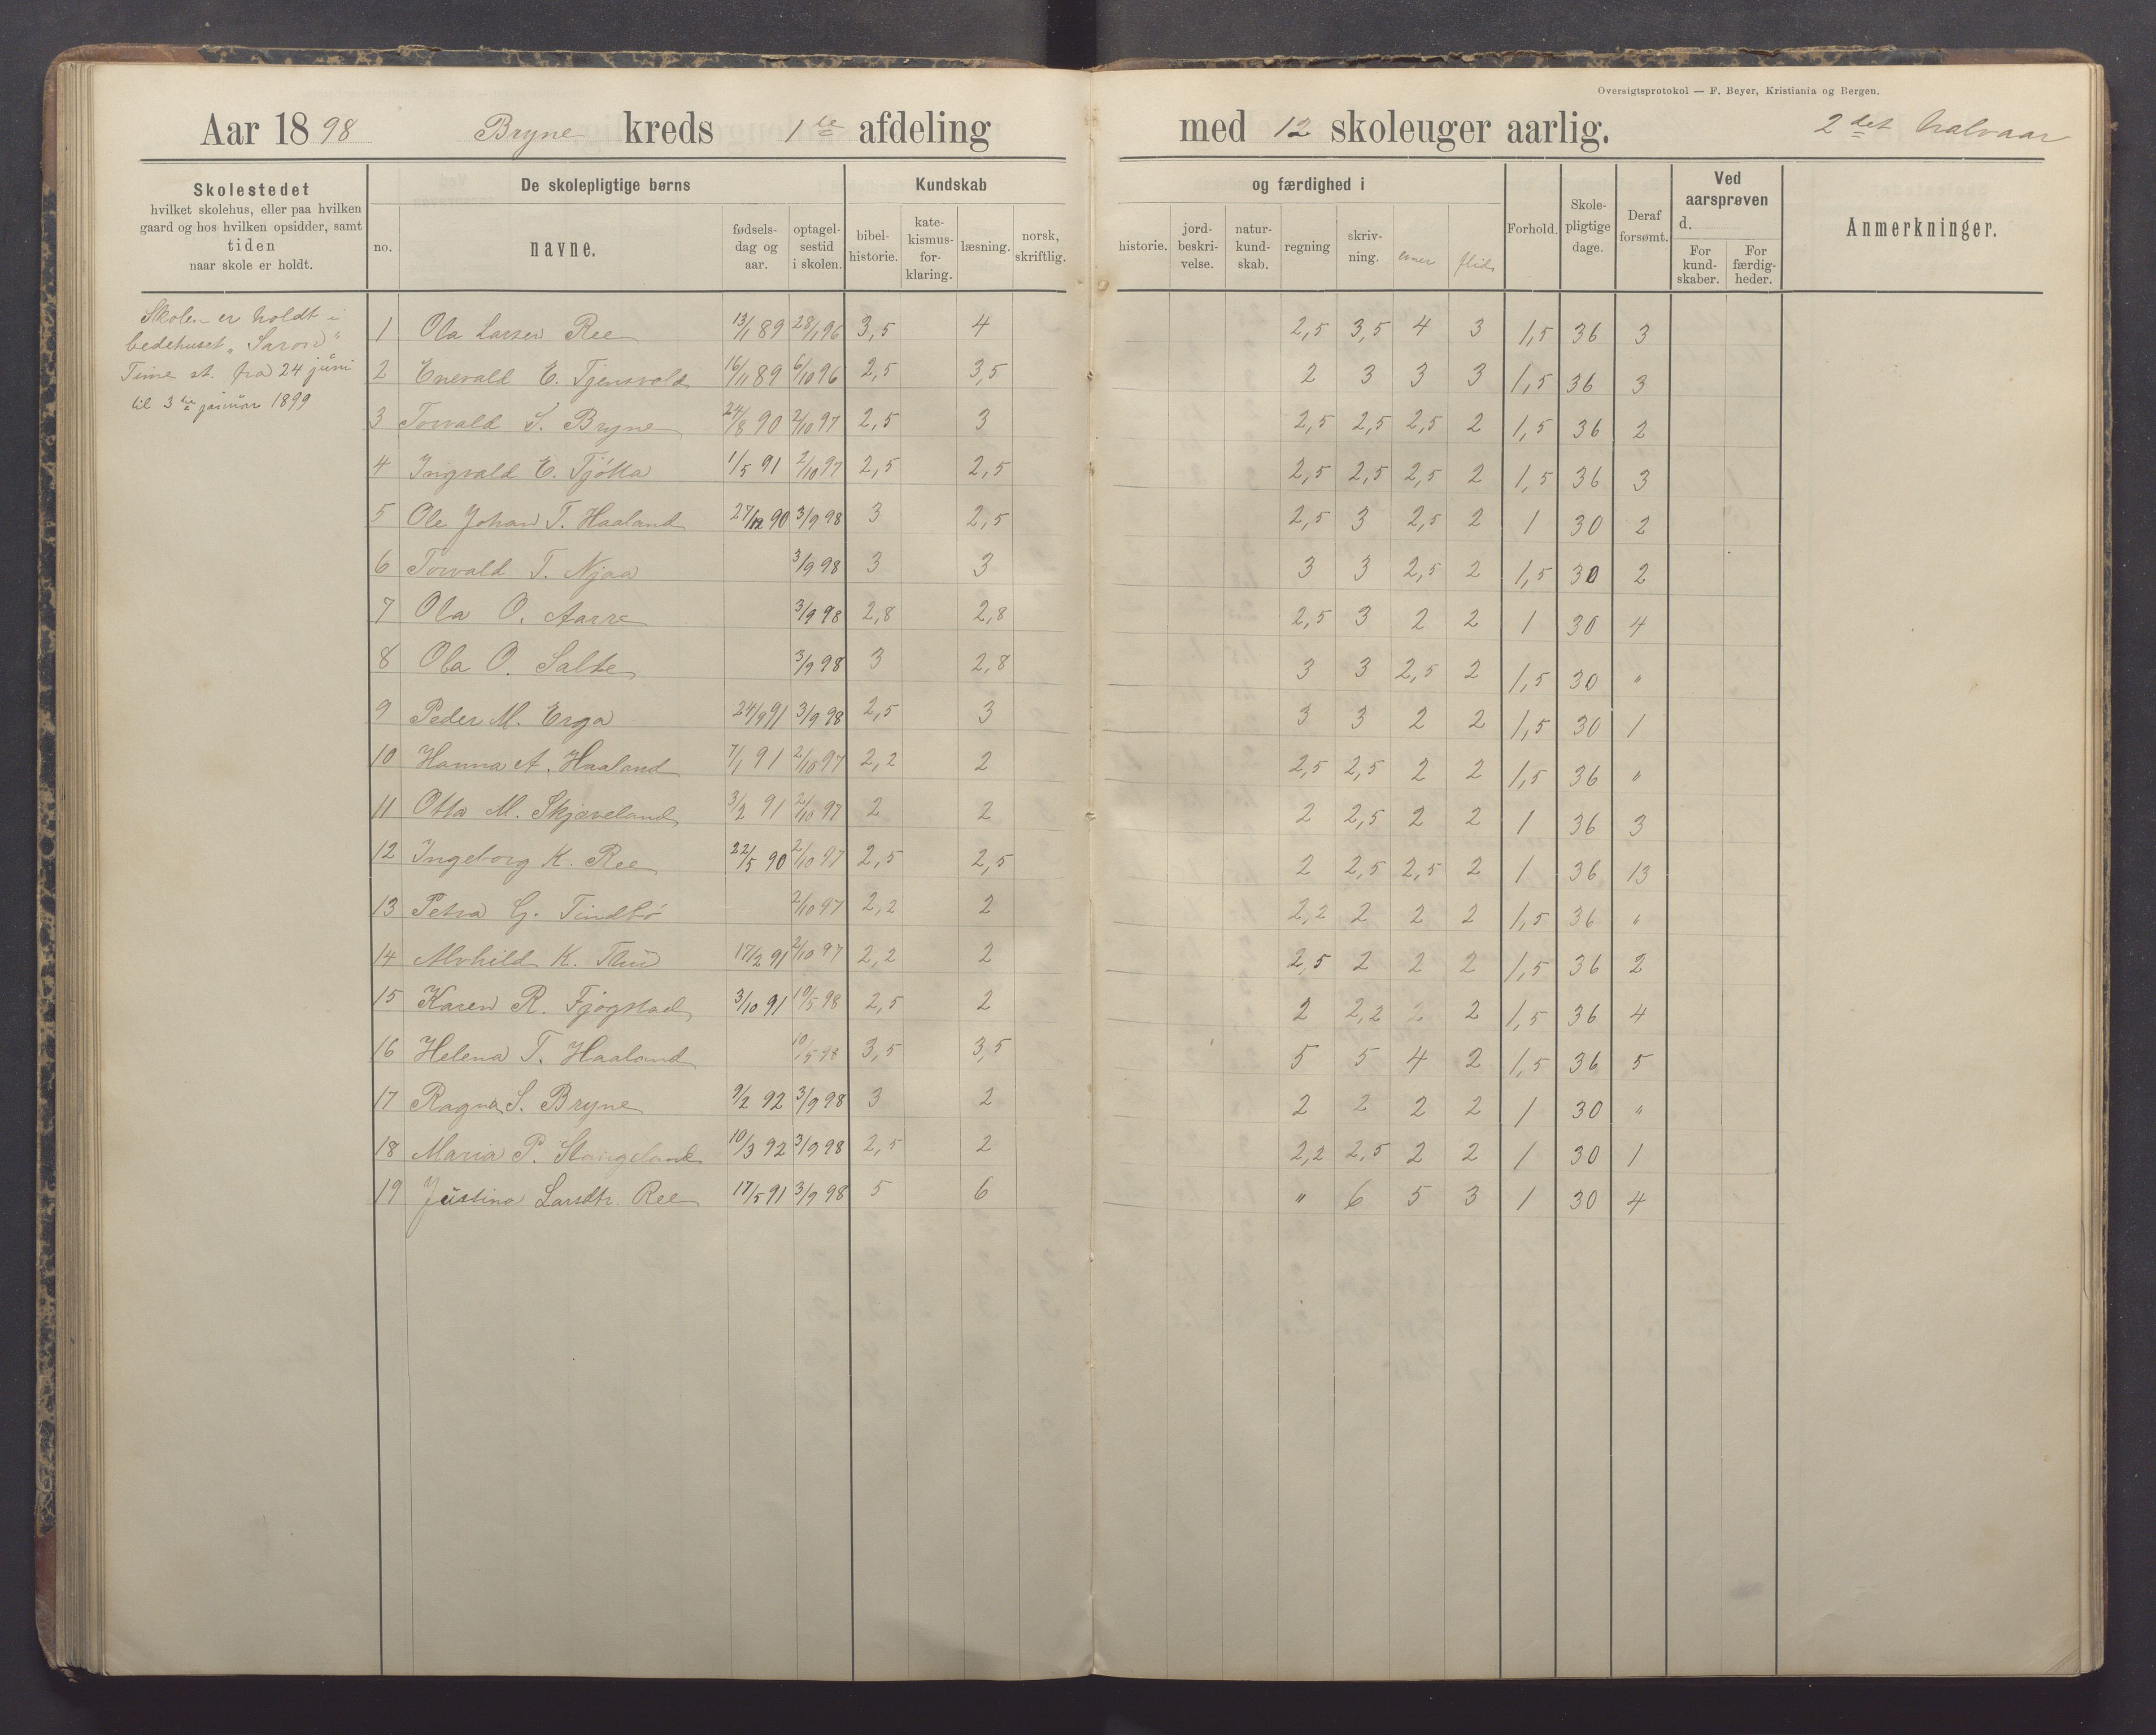 Oversigtsprotokol — F. Beyer, Kristiania og Bergen.
Aar 1898 Bryne kreds 1te afdeling med 12 skoleuger aarlig. 2det halvaar
Skolestedet
hvilket skolehus, eller paa hvilken
gaard og hos hvilken opsidder, samt
tiden
naar skole er holdt.
De skolepligtige børns
no.
navne.
fødsels-
dag og
aar.
optagel-
sestid
i skolen.
Kundskab
bibel-
historie.
kate-
kismus-
for-
klaring.
læsning.
norsk,
skriftlig.
og færdighed i
historie.
jord-
beskri-
velse.
natur-
kund-
skab.
regning
skriv-
ning.
evner
flid
Forhold.
Skole-
pligtige
dage.
Deraf
forsømt.
Ved
aarsprøven
d.
For
kund-
skaber.
For
færdig-
heder.
Anmerkninger.
Skolen er holdt i
bedehuset „Saron"
Time st. fra 24 juni
til 3die januar 1899
1 Ola Larsen Ree 13/1 89 28/1 96 3,5 4 2,5 3,5 4 3 1,5 36 3
2 Enevald E. Tjensvold 16/11 89 6/10 96 2,5 3,5 2 3 3 3 1,5 36 3
3 Torvald S. Bryne 24/8 90 2/10 97 2,5 3 2,5 2,5 2,5 2 1,5 36 2
4 Ingvald E. Tjötta 1/5 91 2/10 97 2,5 2,5 2,5 2,5 2,5 2 1,5 36 3
5 Ole Johan T. Haaland 27/12 90 3/9 98 3 2,5 2,5 3 2,5 2 1 30 2
6 Torvald T. Njaa 3/9 98 3 3 3 3 2,5 2 1,5 30 2
7 Ola O. Aarre 3/9 98 2,8 2,8 2,5 3 2 2 1 30 4
8 Ola O. Salte 3/9 98 3 2,8 3 3 2,5 2 1,5 30 "
9 Peder M. Erga 24/9 91 3/9 98 2,5 3 3 3 2 2 1,5 30 1
10 Hanna A. Haaland 7/1 91 2/10 97 2,2 2 2,5 2,5 2 2 1,5 36 "
11 Otto M. Skjæveland 3/2 91 2/10 97 2 2 2 2,5 2 2 1 36 3
12 Ingeborg K. Ree 22/5 90 2/10 97 2,5 2,5 2 2,5 2,5 2 1 36 13
13 Petra G. Tindbö 2/10 97 2,2 2 2,2 2 2 2 1,5 36 "
14 Alvhild K. Thu 17/2 91 2/10 97 2,2 2 2,5 2 2 2 1,5 36 2
15 Karen R. Fjogstad 3/10 91 10/5 98 2,5 2 2 2,2 2 2 1,5 36 4
16 Helena T. Haaland 10/5 98 3,5 3,5 5 5 4 2 1,5 36 5
17 Ragna S. Bryne 9/2 92 3/9 98 3 2 2 2 2 2 1 30 "
18 Maria P. Stangeland 10/3 92 3/9 98 2,5 2 2,2 2,5 2 2 1 30 1
19 Justina Larsdtr. Ree 17/5 91 3/9 98 5 6 " 6 5 3 1 30 4